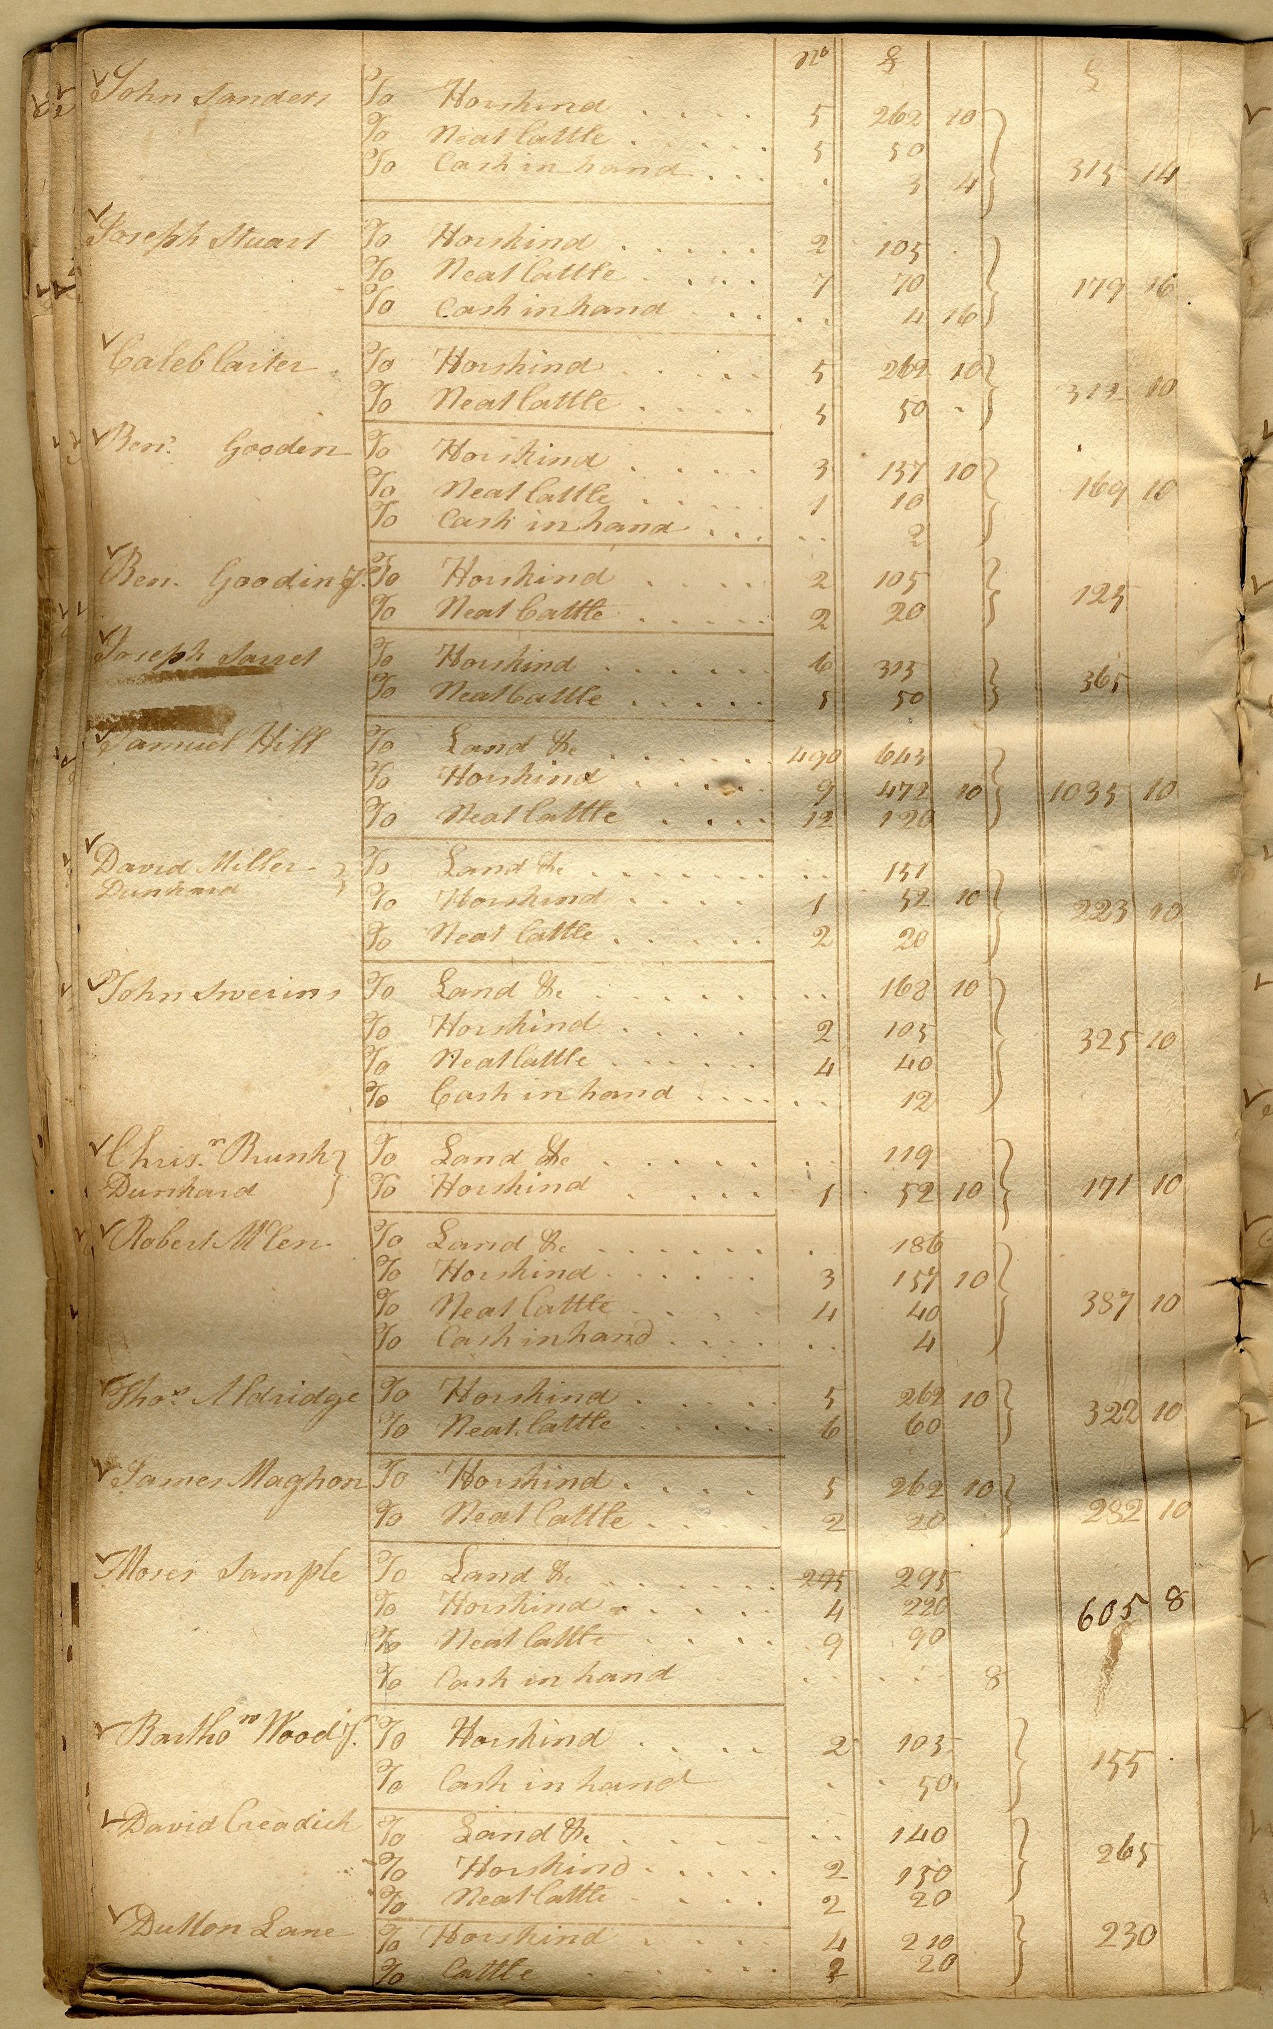 No £ £
John Sanders To Horskind 5 262 10
To Neat Cattle 5 50
To Cash in hand 3 4 315 14
Joseph Stuart To Horskind 2 105
To Neat Cattle 7 70 179 16
To Cash in hand 4 16
Caleb Carter To Horskind 5 262 10
To Neat Cattle 5 50 312 10
Ben. Gooden To Horskind 3 157 10
To Neat Cattle 1 10 169 10
To Cash in hand 2
Ben. Gooding Jr. To Horskind 2 105
To Neat Cattle 2 20 125
Joseph To Horskind 6 315
To Neat Cattle 5 50 365
Samuel Hill To Land &c 490 643
To Horskind 9 472 10 1035 10
To Neat Cattle 12 120
David Miller To Land &c 151
Dunkard To Horskind 1 52 10 223 10
To Neat Cattle 2 20
John Swerins To Land &c 168 10
To Horskind 2 105
To Neat Cattle 4 40 325 10
To Cash in hand 12
Chris.n Brunk To Land &c 119
Dunkard To Horskind 1 52 10 171 10
Robert To Land &c 186
To Horskind 3 157 10
To Neat Cattle 4 40 387 10
To Cash in hand 4
Thos. Aldridge To Horskind 5 262 10
To Neat Cattle 6 60 322 10
James Maghon To Horskind 5 262 10
To Neat Cattle 2 20 282 10
Moses Sample To Land &c 295 295
To Horskind 4 220 605 8
To Neat Cattle 9 90
To Cash in hand 8
Bartho.w Wood Jr. To Horskind 2 105
To Cash in hand 50 155
David Creadick To Land &c 140
To Horskind 2 150 265
To Neat Cattle 2 20
Dutton Lane To Horskind 4 210 230
To Cattle 2 20